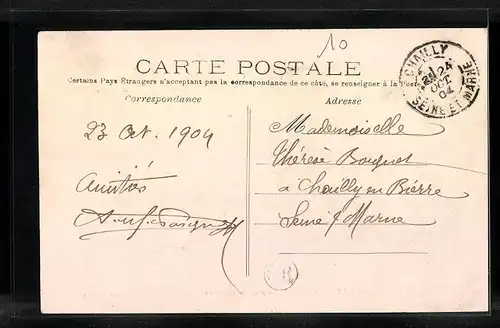 10
CARTE POSTALE
Certains Pays Étrangers n'acceptant pas la correspondance de ce côté, se renseigner à la Poste
CHAILLY
24
OCT
04
SEINE ET MARNE
Correspondance
23 Oct. 1904
Amitiés
Adresse
Mademoiselle
Thérèse Bouquot
à Chailly en Bierre
Seine & Marne